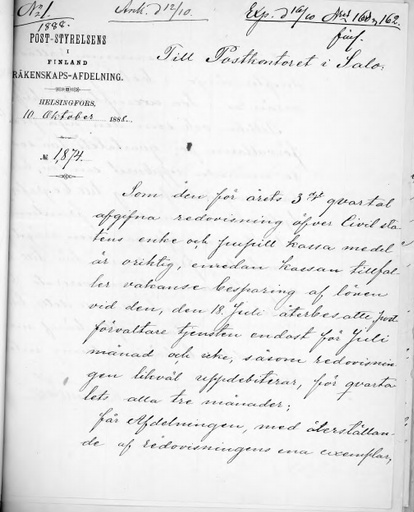 No 1. Ank. d 12/10. Exp. d 16/10 Nris 160 & 162.
1888.
POST-STYRELSENS
I
FINLAND
RÄKENSKAPS-AFDELNING.
HELSINGFORS,
10 Oktober 1888.
No 1,874.
Till Postkontoret i Salo.
Som den för årets 3dje qvartal
afgifna redovisning öfver Civil sta
tens enke och pupill kassa medel
är oriktig, emedan kassan tillfal
ler vakanse besparing af lönen
vid den, den 18 Juli återbesatte post
förvaltare tjensten endast för Juli
månad och icke, såsom redovisnin
gen likväl uppdebiterar, för qvarta
lets alla tre månader;
får Afdelningen, med öfverstallan
de af redovisningens ena exemplar,